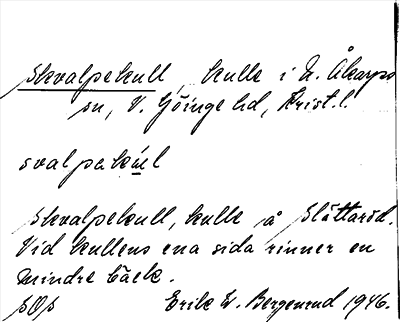 Skvalpekull, kulle i N. Åkarps
sn, V. Göinge hd, Krist. l.
svalpekul
Skvalpekull, kulle å Slättaröd.
Vid kullens ena sida rinner en
mindre bäck.
SOS Erik W. Bergenrud 1946.